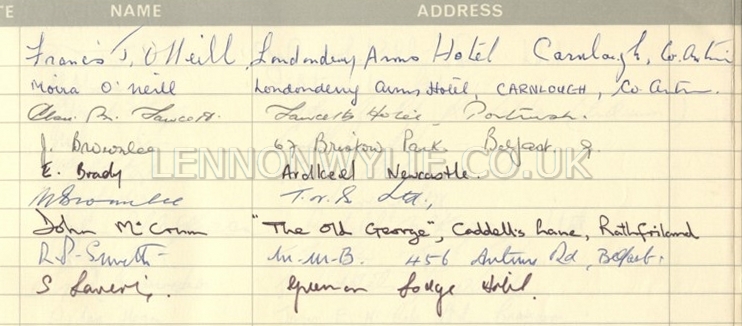 E NAME ADDRESS
Francis J. O'Neill, Londonderry Arms Hotel Carnlough, Co. Antrim
Moira O'Neill Londonderry Arms Hotel, CARNLOUGH, Co. Antrim.
Fawcett. Fawcetts Hotel Portrush.
J. Brownlee 67 Bristow Park Belfast 9
LENNONWYLIE.CO.UK
E. Brady Ardkeel Newcastle.
Ltd.,
John McCrum "The Old George", Caddell's Lane, Rathfriland
M.M.B. 456 Antrim Rd, Belfast.
S Lavery. Lodge Hotel.